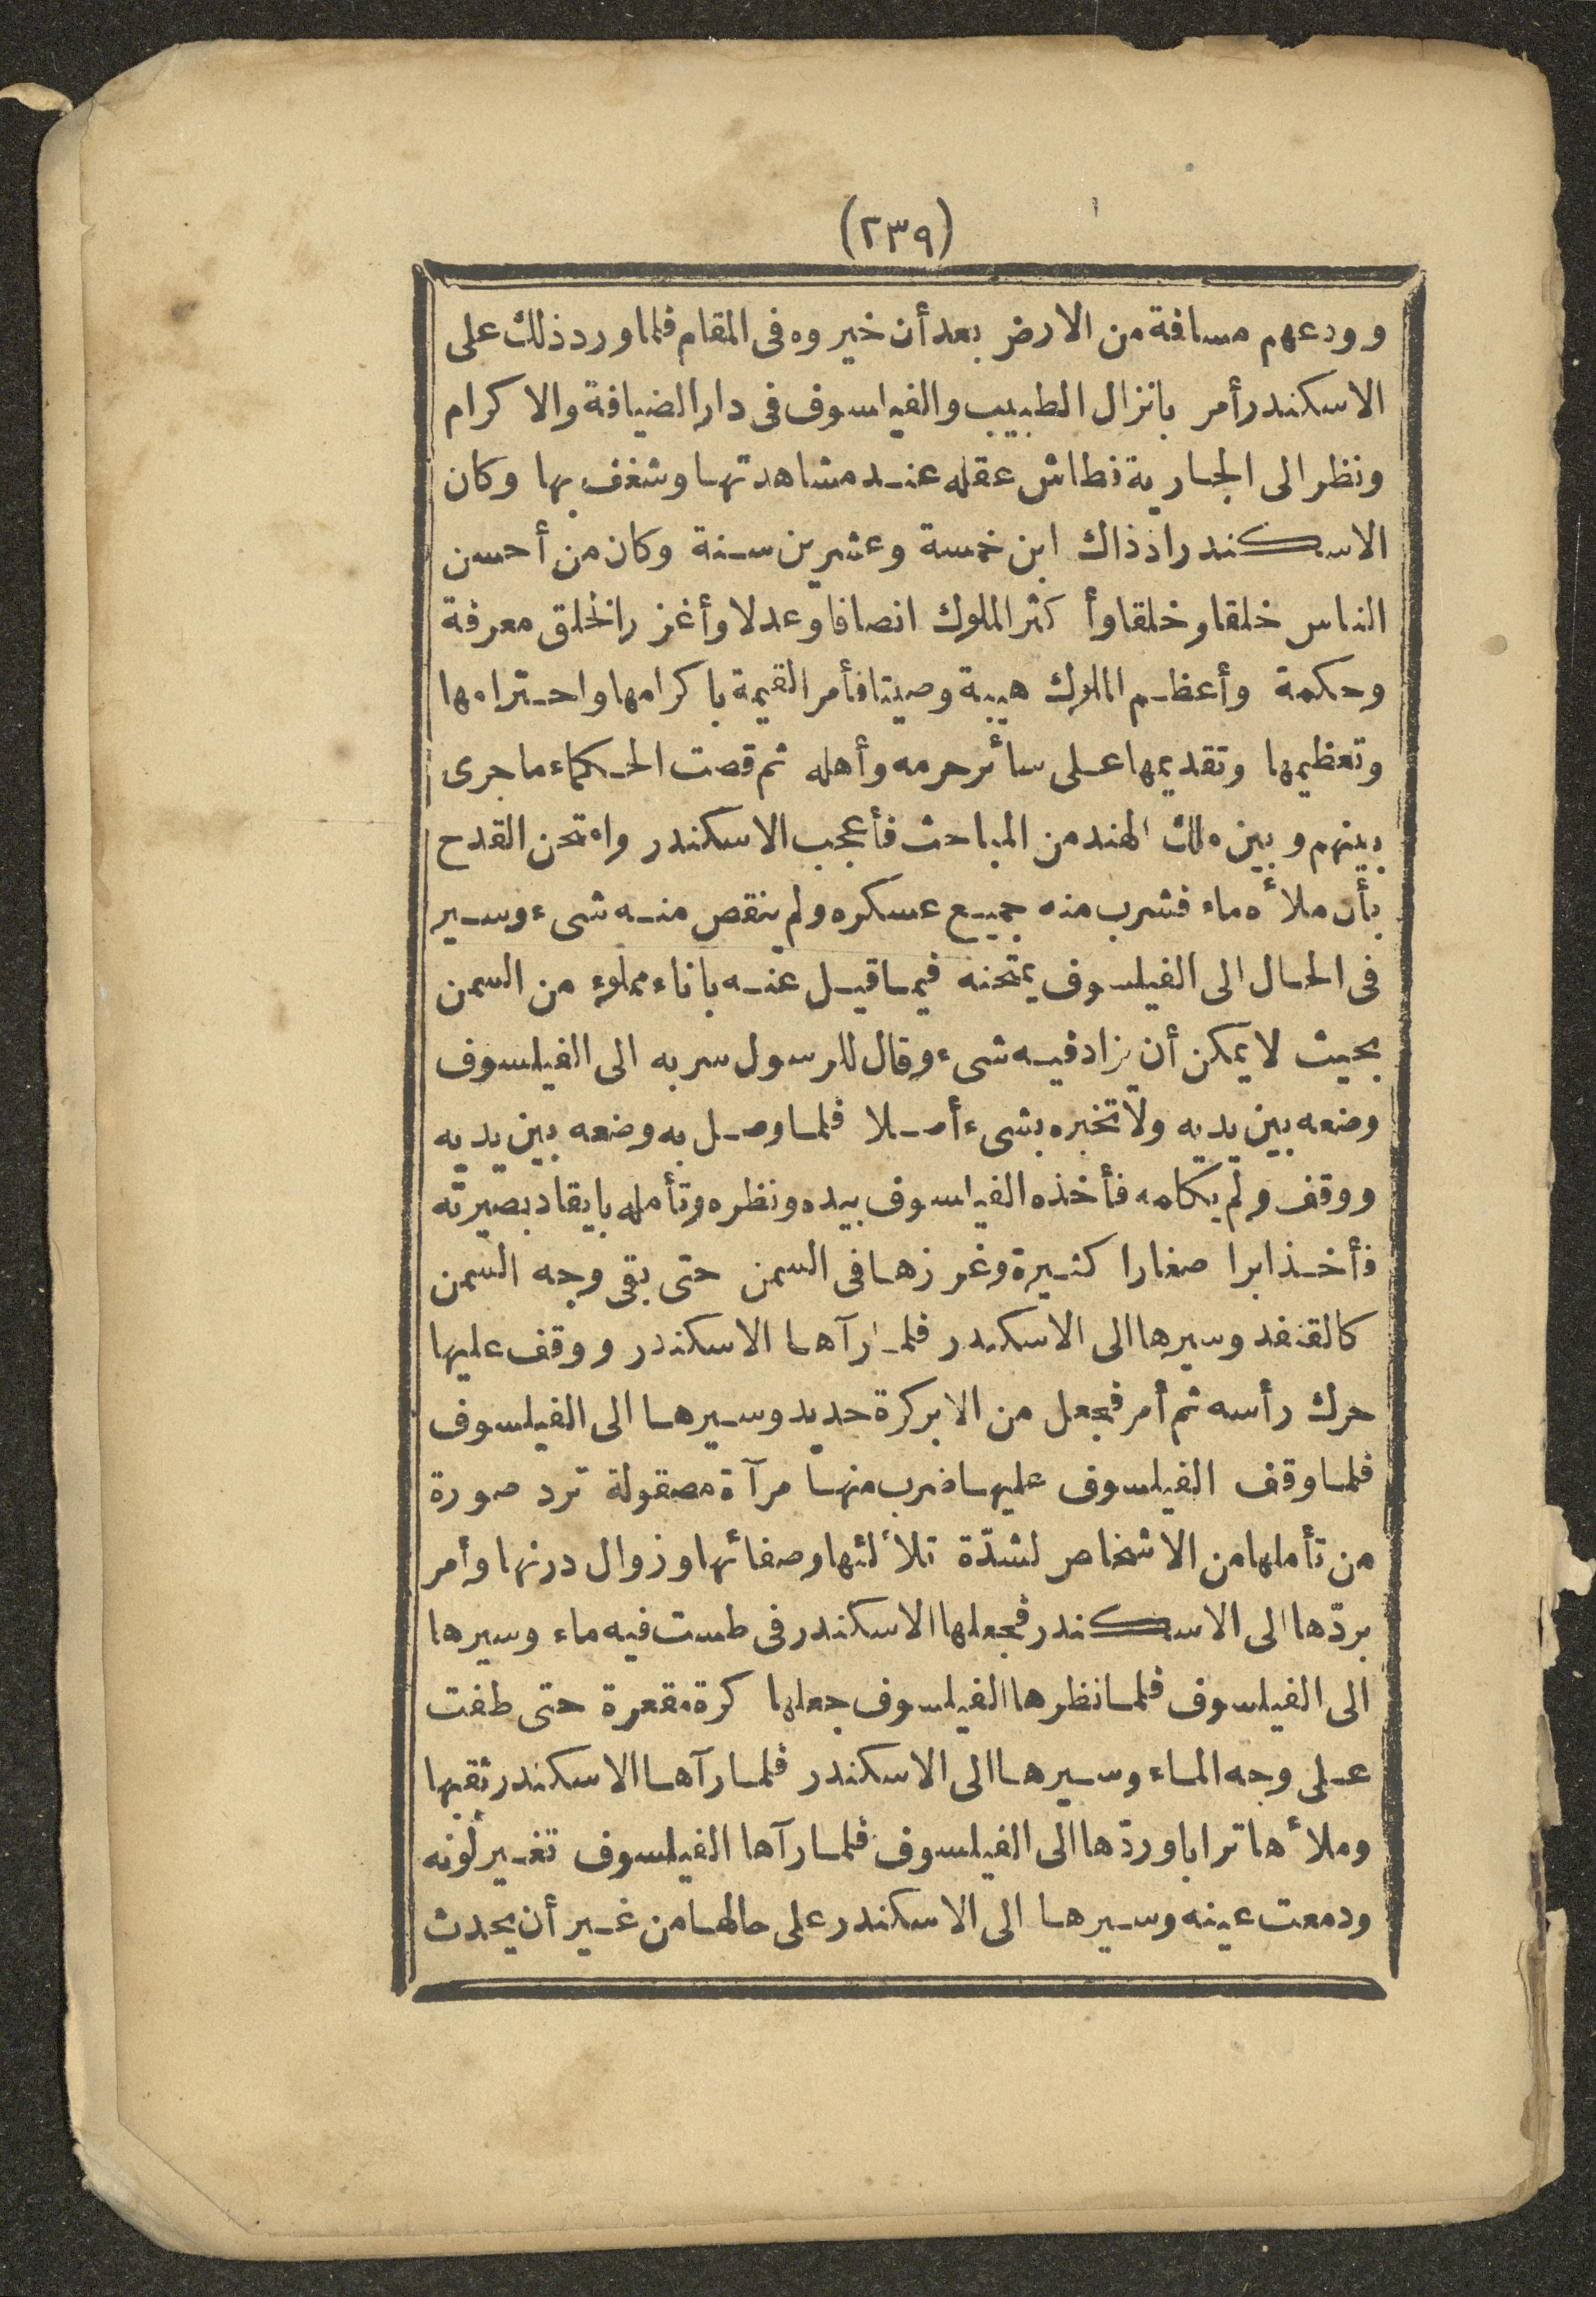 (٢٣٩)
وودعهم مسافة من الارض بعد أن خيروه فى المقام فلما ورد ذلك على
الاسكندر أمر بانزال الطبيب والفيلسوف فى دار الضيافة والاكرام
ونظر الى الجارية فطاش عقله عند مشاهدتها وشغف بها وكان
الاسكندر اذ ذاك ابن خمسة وعشرين سنة وكان من أحسن
الناس خلقا وخلقا وأكثر الملوك انصافا وعدلا وأغزر الخلق معرفة
وحكمة وأعظم الملوك هيبة وصيتا فأمر القيمة باكرامها واحترامها
وتعظيمها وتقديمها على سائر حرمه وأهله ثم قصت الحكماء ما جرى
بينهم وبين ملك الهند من المباحث فأعجب الاسكندر وامتحن القدح
بأن ملأه ماء فشرب منه جميع عسكره ولم ينقص منه شىء وسير
فى الحال الى الفيلسوف يمتحنه فيما قيل عنه باناء مملوء من السمن
بحيث لا يمكن أن يزاد فيه شىء وقال للرسول سر به الى الفيلسوف
وضعه بين يديه ولا تخبره بشىء أصلا فلما وصل به وضعه بين يديه
ووقف ولم يكلمه فأخذه الفيلسوف بيده ونظره وتأمله بايقاد بصيرته
فأخذ ابرا صغارا كثيرة وغرزها فى السمن حتى بقى وجه السمن
كالقنفد وسيرها الى الاسكندر فلما رآها الاسكندر ووقف عليها
حرك رأسه ثم أمر فجعل من الابر كرة حديد وسيرها الى الفيلسوف
فلما وقف الفيلسوف عليها ضرب منها مرآة مصقولة ترد صورة
من تأملها من الاشخاص لشدّة تلألئها وصفائها وزوال درنها وأمر
بردّها الى الاسكندر فجعلها الاسكندر فى طست فيه ماء وسيرها
الى الفيلسوف فلما نظرها الفيلسوف جعلها كرة مقعرة حتى طفت
على وجه الماء وسيرها الى الاسكندر فلما رآها الاسكندر ثقبها
وملأها ترابا وردّها الى الفيلسوف فلما رآها الفيلسوف تغير لونه
ودمعت عينه وسيرها الى الاسكندر على حالها من غير أن يحدث